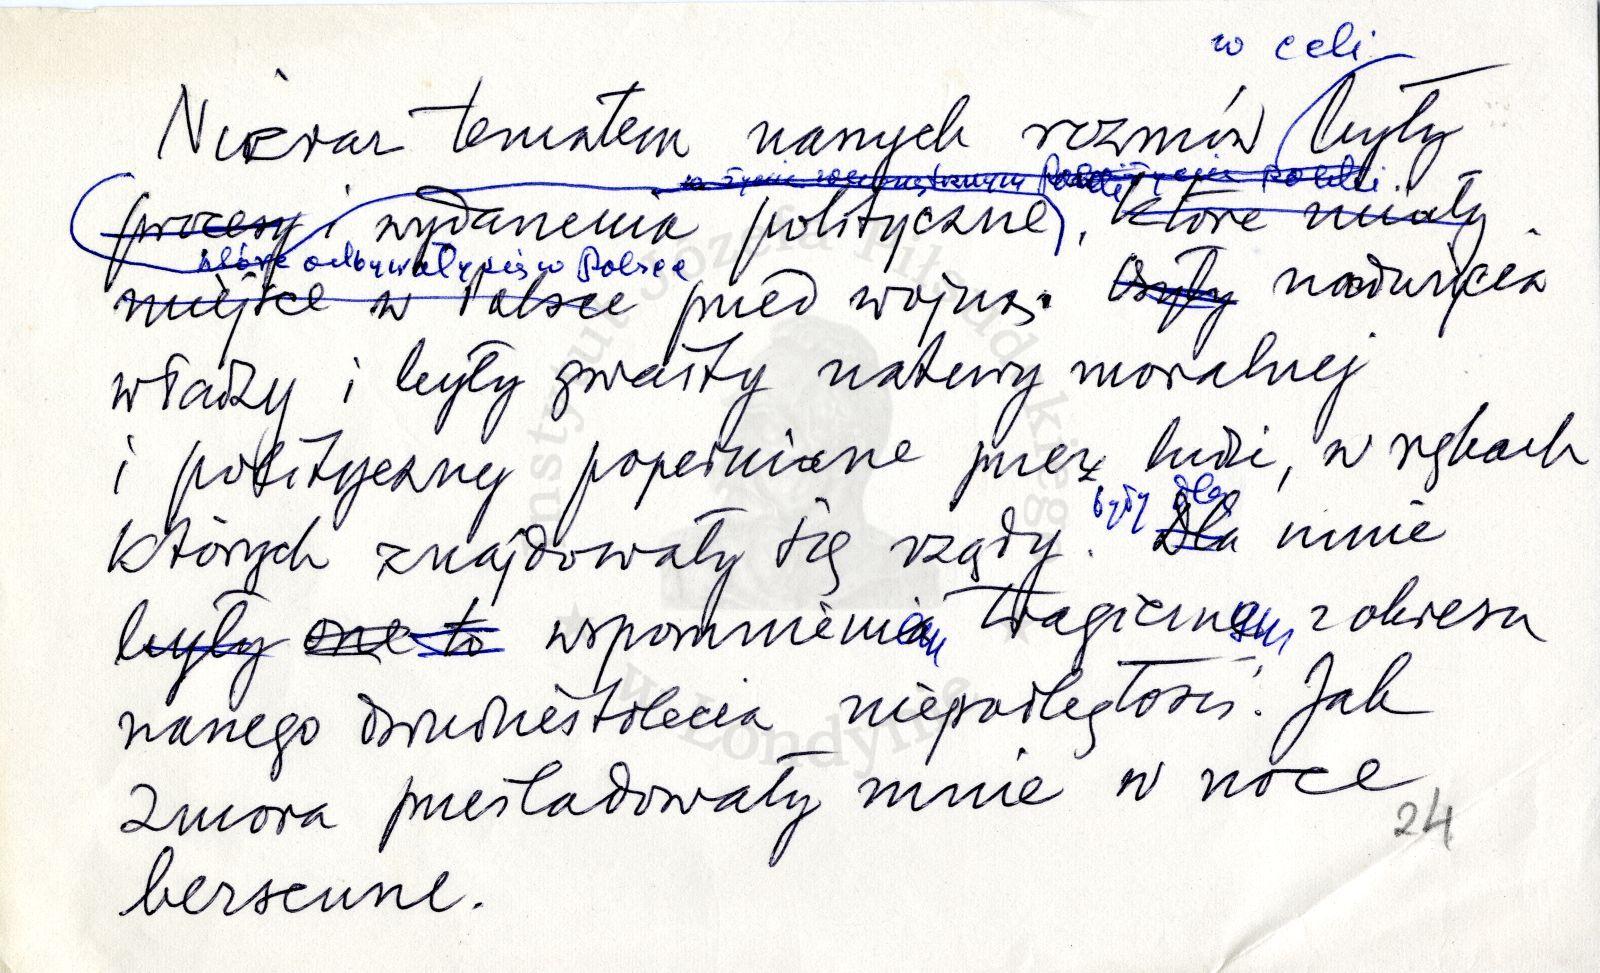 w celi
Nieraz tematem naszych rozmów były
w życiu wewnętrznym Polski życie Polski.
procesy i wydarzenia polityczne, które miały
które odbywały się w Polsce
miejsce w Polsce przed wojną. Były nadużycia
władzy i były gwałty natury moralnej
i politycznej popełniane przez ludzi, w rękach
których znajdowały się rządy. były dla Dla mnie
były one to wspomnieniem tragicznym z okresu
naszego dwudziestolecia niepodległości. Jak
zmora prześladowały mnie w noce
bezsenne.
24
Instytut Józefa Piłsudskiego
w Londynie